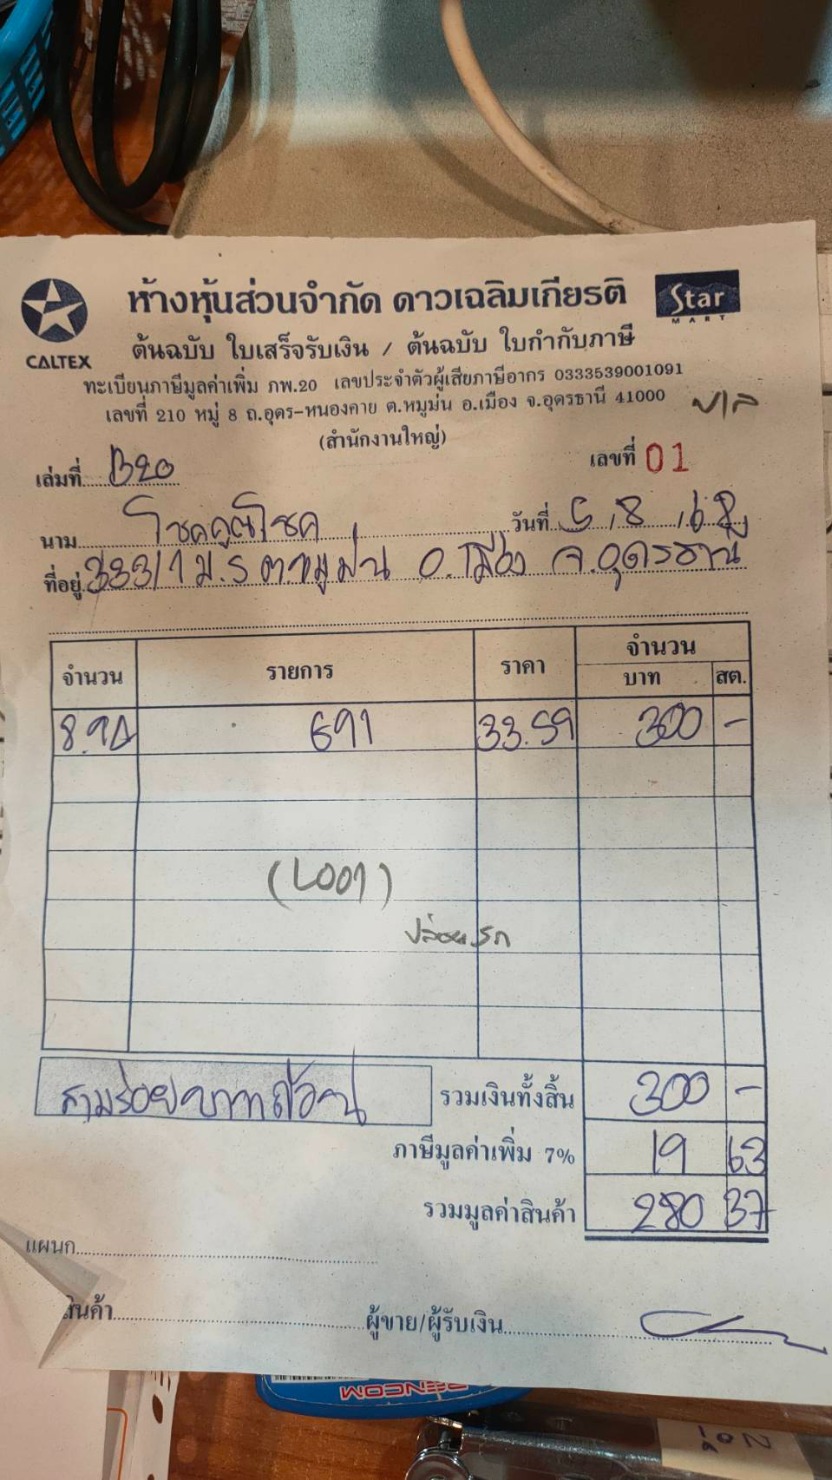 ห้างหุ้นส่วนจำกัด ดาวเฉลิมเกียรติ
Star
MART
CALTEX
ต้นฉบับ ใบเสร็จรับเงิน / ต้นฉบับ ใบกำกับภาษี
ทะเบียนภาษีมูลค่าเพิ่ม ภพ.20 เลขประจำตัวผู้เสียภาษีอากร 0333539001091
เลขที่ 210 หมู่ 8 ถ.อุดร-หนองคาย ต.หมูม่น อ.เมือง จ.อุดรธานี 41000
(สำนักงานใหญ่)
เล่มที่ B20 เลขที่ 01
นาม โชคคูณโชค วันที่ 5,8,68
ที่อยู่ 333/1 ม.5 ต.หมูม่น อ.เมือง จ.อุดรธานี
จำนวน รายการ ราคา จำนวน
บาท สต.
8.94 G91 33.59 300 -
(L001)
สามร้อยบาทถ้วน รวมเงินทั้งสิ้น 300 -
ภาษีมูลค่าเพิ่ม 7% 19 63
รวมมูลค่าสินค้า 280 37
แผนก
สินค้า ผู้ขาย/ผู้รับเงิน